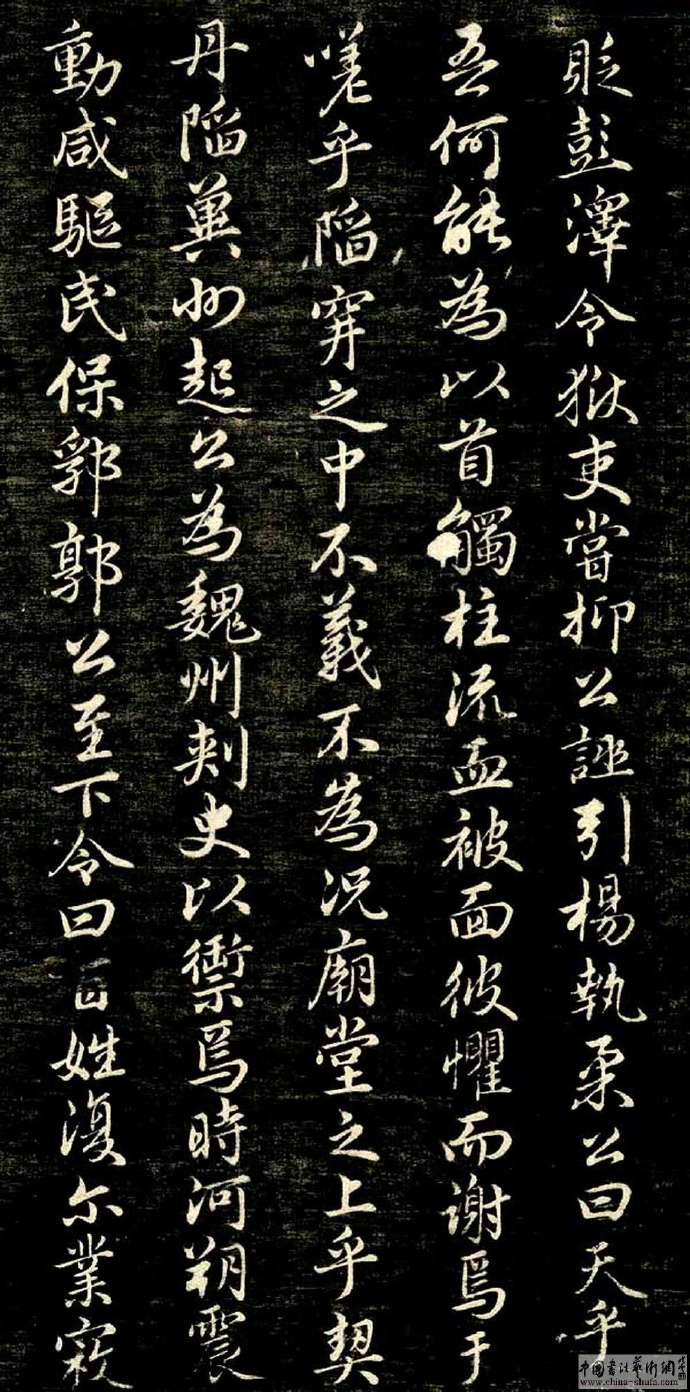 貶彭澤令獄吏嘗抑公誣引楊執柔公曰天乎
吾何能為以首觸柱流血被面彼懼而謝焉于
嗟乎陷穽之中不義不為況廟堂之上乎契
丹陷冀州起公為魏州刺史以禦焉時河朔震
動咸驅民保郛郭公至下令曰百姓復尒業寇
中國書法藝術網
www.china-shufa.com